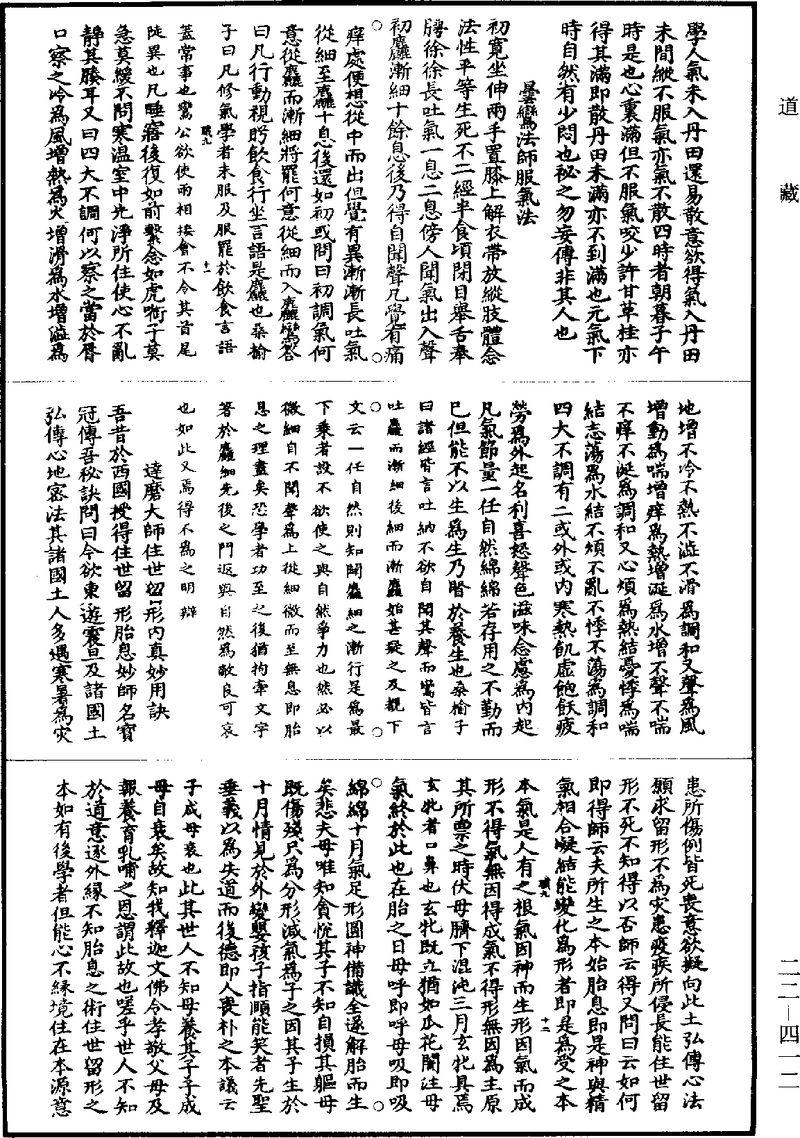 道藏
二二—四一二
學人氣未入丹田還易散意欲得氣入丹田
未間縱不服氣亦氣不散四時者朝暮子午
時是也心裏滿但不服氣咬少許甘草桂亦
得其滿即散丹田未滿亦不到滿也元氣下
時自然有少悶也祕之勿妄傳非其人也
曇鸞法師服氣法
初寬坐伸兩手置膝上解衣帶放縱肢體念
法性平等生死不二經半食頃閉目舉舌奉
腭徐徐長吐氣一息二息傍人聞氣出入聲
初麤漸細十餘息後乃得自聞聲凡覺有痛
痒處便想從中而出但覺有異漸漸長吐氣
從細至麤十息後還如初或問曰初調氣何
意從麤而漸細將罷何意從細而入麤鸞答
曰凡行動視眄飲食行坐言語是麤也桑榆
子曰凡修氣學者未服及服罷於飲食言語
職九 十一
蓋常事也鸞公欲使兩相接會不令其首尾
陡異也凡睡寤後復如前繫念如虎銜子莫
急莫緩不問寒温室中先淨所住使心不亂
靜其膝耳又曰四大不調何以察之當於脣
口察之冷為風增熱為火增滑為水增澁為
地增不冷不熱不澁不滑為調和又聲為風
增動為喘增痒為熱增涎為水增不聲不喘
不痒不涎為調和又心煩為熱結憂悸為喘
結志蕩為水結不煩不亂不悸不蕩為調和
四大不調有二或外或內寒熱飢虛飽飫疲
勞為外起名利喜怒聲色滋味念慮為內起
凡氣節量一任自然綿綿若存用之不勤而
已但能不以生為生乃賢於養生也桑榆子
曰諸經皆言吐納不欲自聞其聲而鸞皆言
吐麤而漸細後細而漸麤始甚疑之及覩下
文云一任自然則知關麤細之漸行是為最
下乘者設不欲使之與自然爭力也然必以
微細自不聞聲為上從細微而至無息即胎
息之理盡矣恐學者功至之後猶拘牽文字
著於麤細先後之門返與自然為敵良可哀
也如此又焉得不為之明辯
達磨大師住世留形內真妙用訣
吾昔於西國授得住世留形胎息妙師名寶
冠傳吾秘訣問曰今欲東遊震旦及諸國土
弘傳心地密法其諸國土人多遇寒暑為灾
患所傷例皆死喪意欲擬向此土弘傳心法
願求留形不為灾患疫疾所侵長能住世留
形不死不知得以否師云得又問曰云如何
即得師云夫所生之本始胎息即是神與精
氣相合凝結能變化為形者即是為受之本
職九 十二
本氣是人有之根氣因神而生形因氣而成
形不得氣無因得成氣不得形無因為主原
其所稟之時伏母臍下混沌三月玄牝具焉
玄牝者口鼻也玄牝既立猶如瓜花開注母
氣終於此也在胎之日母呼即呼母吸即吸
綿綿十月氣足形圓神備識全遂解胎而生
矣悲夫母唯知貪悅其子不知自損其軀母
既傷殘只為分形減氣為子之因其子生於
十月情見於外變嬰孩子指顧能笑者先聖
垂義以為失道而後德即人喪朴之本議云
子成母衰也此其世人不知母養其子子成
母自衰矣故知我釋迦文佛令孝敬父母及
報養育乳哺之恩謂此故也嗟乎世人不知
於道意逐外緣不知胎息之術住世留形之
本如有後學者但能心不緣境住在本源意